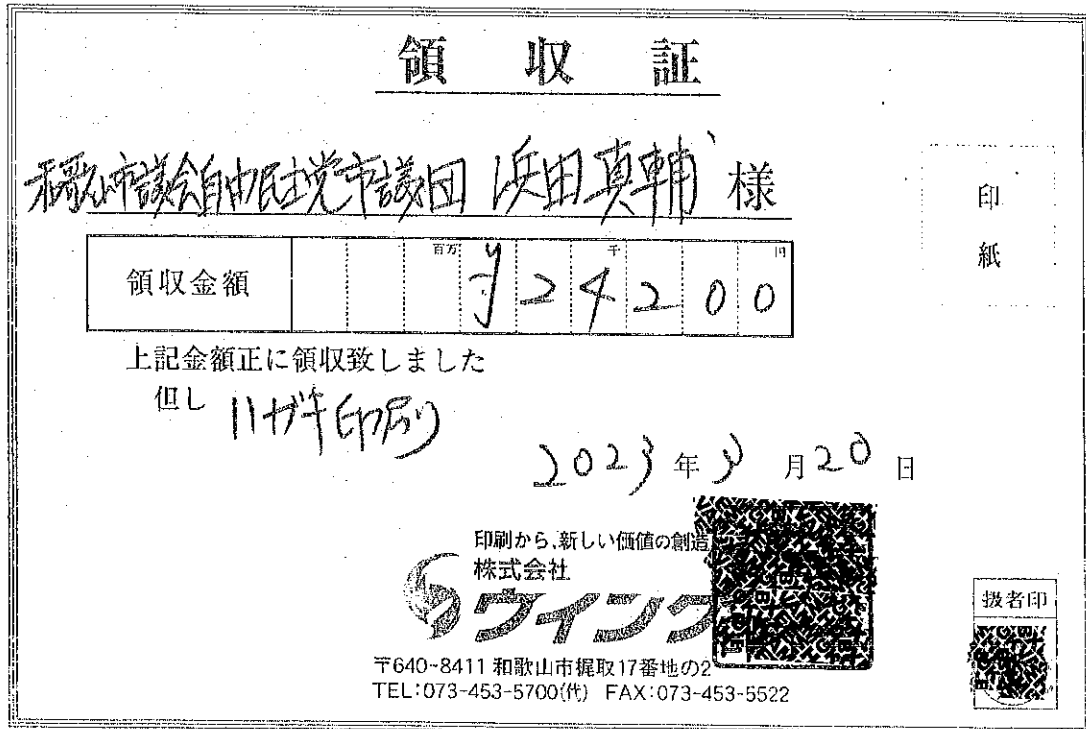 領収証
和歌山市議会自由民主党市議団 浜田真輔 様
印紙
領収金額 百万 千 円 ¥24200
上記金額正に領収致しました
但し ハガキ印刷
2023年3月20日
印刷から、新しい価値の創造
株式会社
ウイング
扱者印
〒640-8411 和歌山市梶取17番地の2
TEL:073-453-5700(代) FAX:073-453-5522